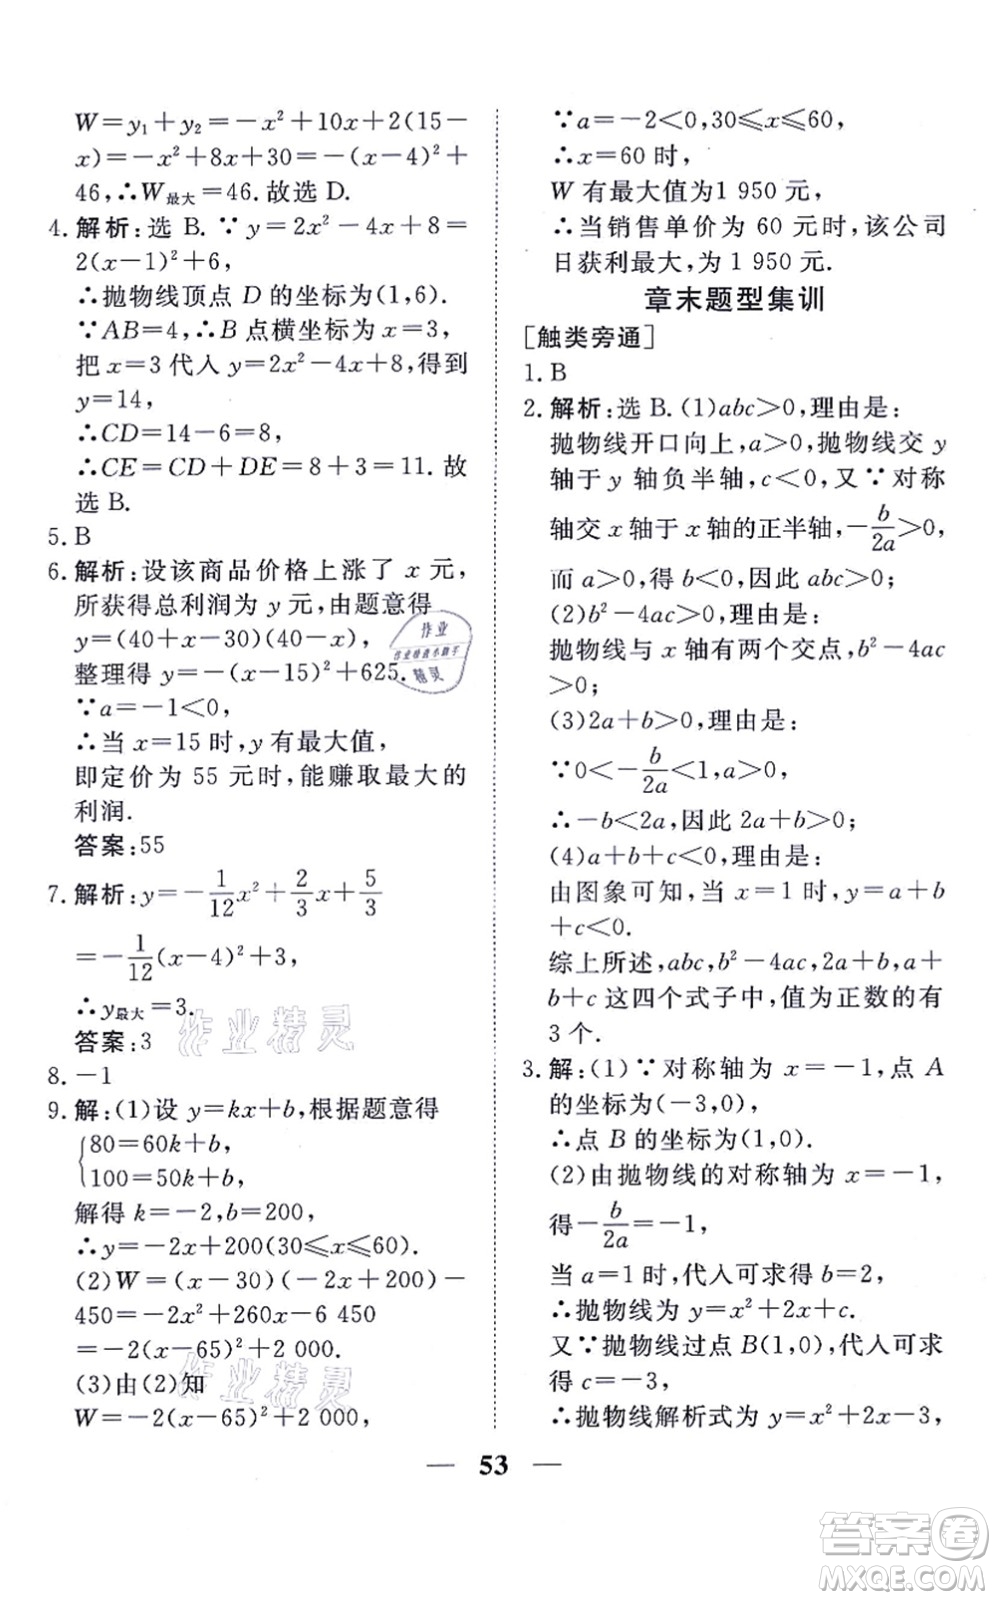 W=y₁+y₂=-x²+10x+2(15-
x)=-x²+8x+30=-(x-4)²+
46,∴W最大=46.故选 D.
4. 解析:选 B. ∵y=2x²-4x+8=
2(x-1)²+6,
∴抛物线顶点 D 的坐标为(1,6).
∵AB=4,∴B 点横坐标为 x=3,
把 x=3 代入 y=2x²-4x+8,得到
y=14,
∴CD=14-6=8,
∴CE=CD+DE=8+3=11. 故
选 B.
5. B
6. 解析:设该商品价格上涨了 x 元,
所获得总利润为 y 元,由题意得
y=(40+x-30)(40-x),
整理得 y=-(x-15)²+625.
∵a=-1<0,
∴当 x=15 时,y 有最大值,
即定价为 55 元时,能赚取最大的
利润.
答案:55
7. 解析:y=-1/12x²+2/3x+5/3
=-1/12(x-4)²+3,
∴y最大=3.
答案:3
8. -1
9. 解:(1)设 y=kx+b,根据题意得
{80=60k+b,
100=50k+b,
解得 k=-2,b=200,
∴y=-2x+200(30≤x≤60).
(2)W=(x-30)(-2x+200)-
450=-2x²+260x-6 450
=-2(x-65)²+2 000.
(3)由(2)知
W=-2(x-65)²+2 000,
∵a=-2<0,30≤x≤60,
∴x=60 时,
W 有最大值为1 950 元,
∴当销售单价为 60 元时,该公司
日获利最大,为 1 950 元.
章末题型集训
[触类旁通]
1. B
2. 解析:选 B.(1)abc>0,理由是:
抛物线开口向上,a>0,抛物线交 y
轴于 y 轴负半轴,c<0,又∵对称
轴交 x 轴于 x 轴的正半轴,-b/2a>0,
而 a>0,得 b<0,因此 abc>0;
(2)b²-4ac>0,理由是:
抛物线与 x 轴有两个交点,b²-4ac
>0;
(3)2a+b>0,理由是:
∵0<-b/2a<1,a>0,
∴-b<2a,因此 2a+b>0;
(4)a+b+c<0,理由是:
由图象可知,当 x=1 时,y=a+b
+c<0.
综上所述,abc,b²-4ac,2a+b,a+
b+c 这四个式子中,值为正数的有
3 个.
3. 解:(1)∵对称轴为 x=-1,点 A
的坐标为(-3,0),
∴点 B 的坐标为(1,0).
(2)由抛物线的对称轴为 x=-1,
得-b/2a=-1,
当 a=1 时,代入可求得 b=2,
∴抛物线为 y=x²+2x+c.
又∵抛物线过点 B(1,0),代入可求
得 c=-3,
∴抛物线解析式为 y=x²+2x-3,
— 53 —
作业
精灵
作业精灵
作业精灵
答案圈
MXQE.COM